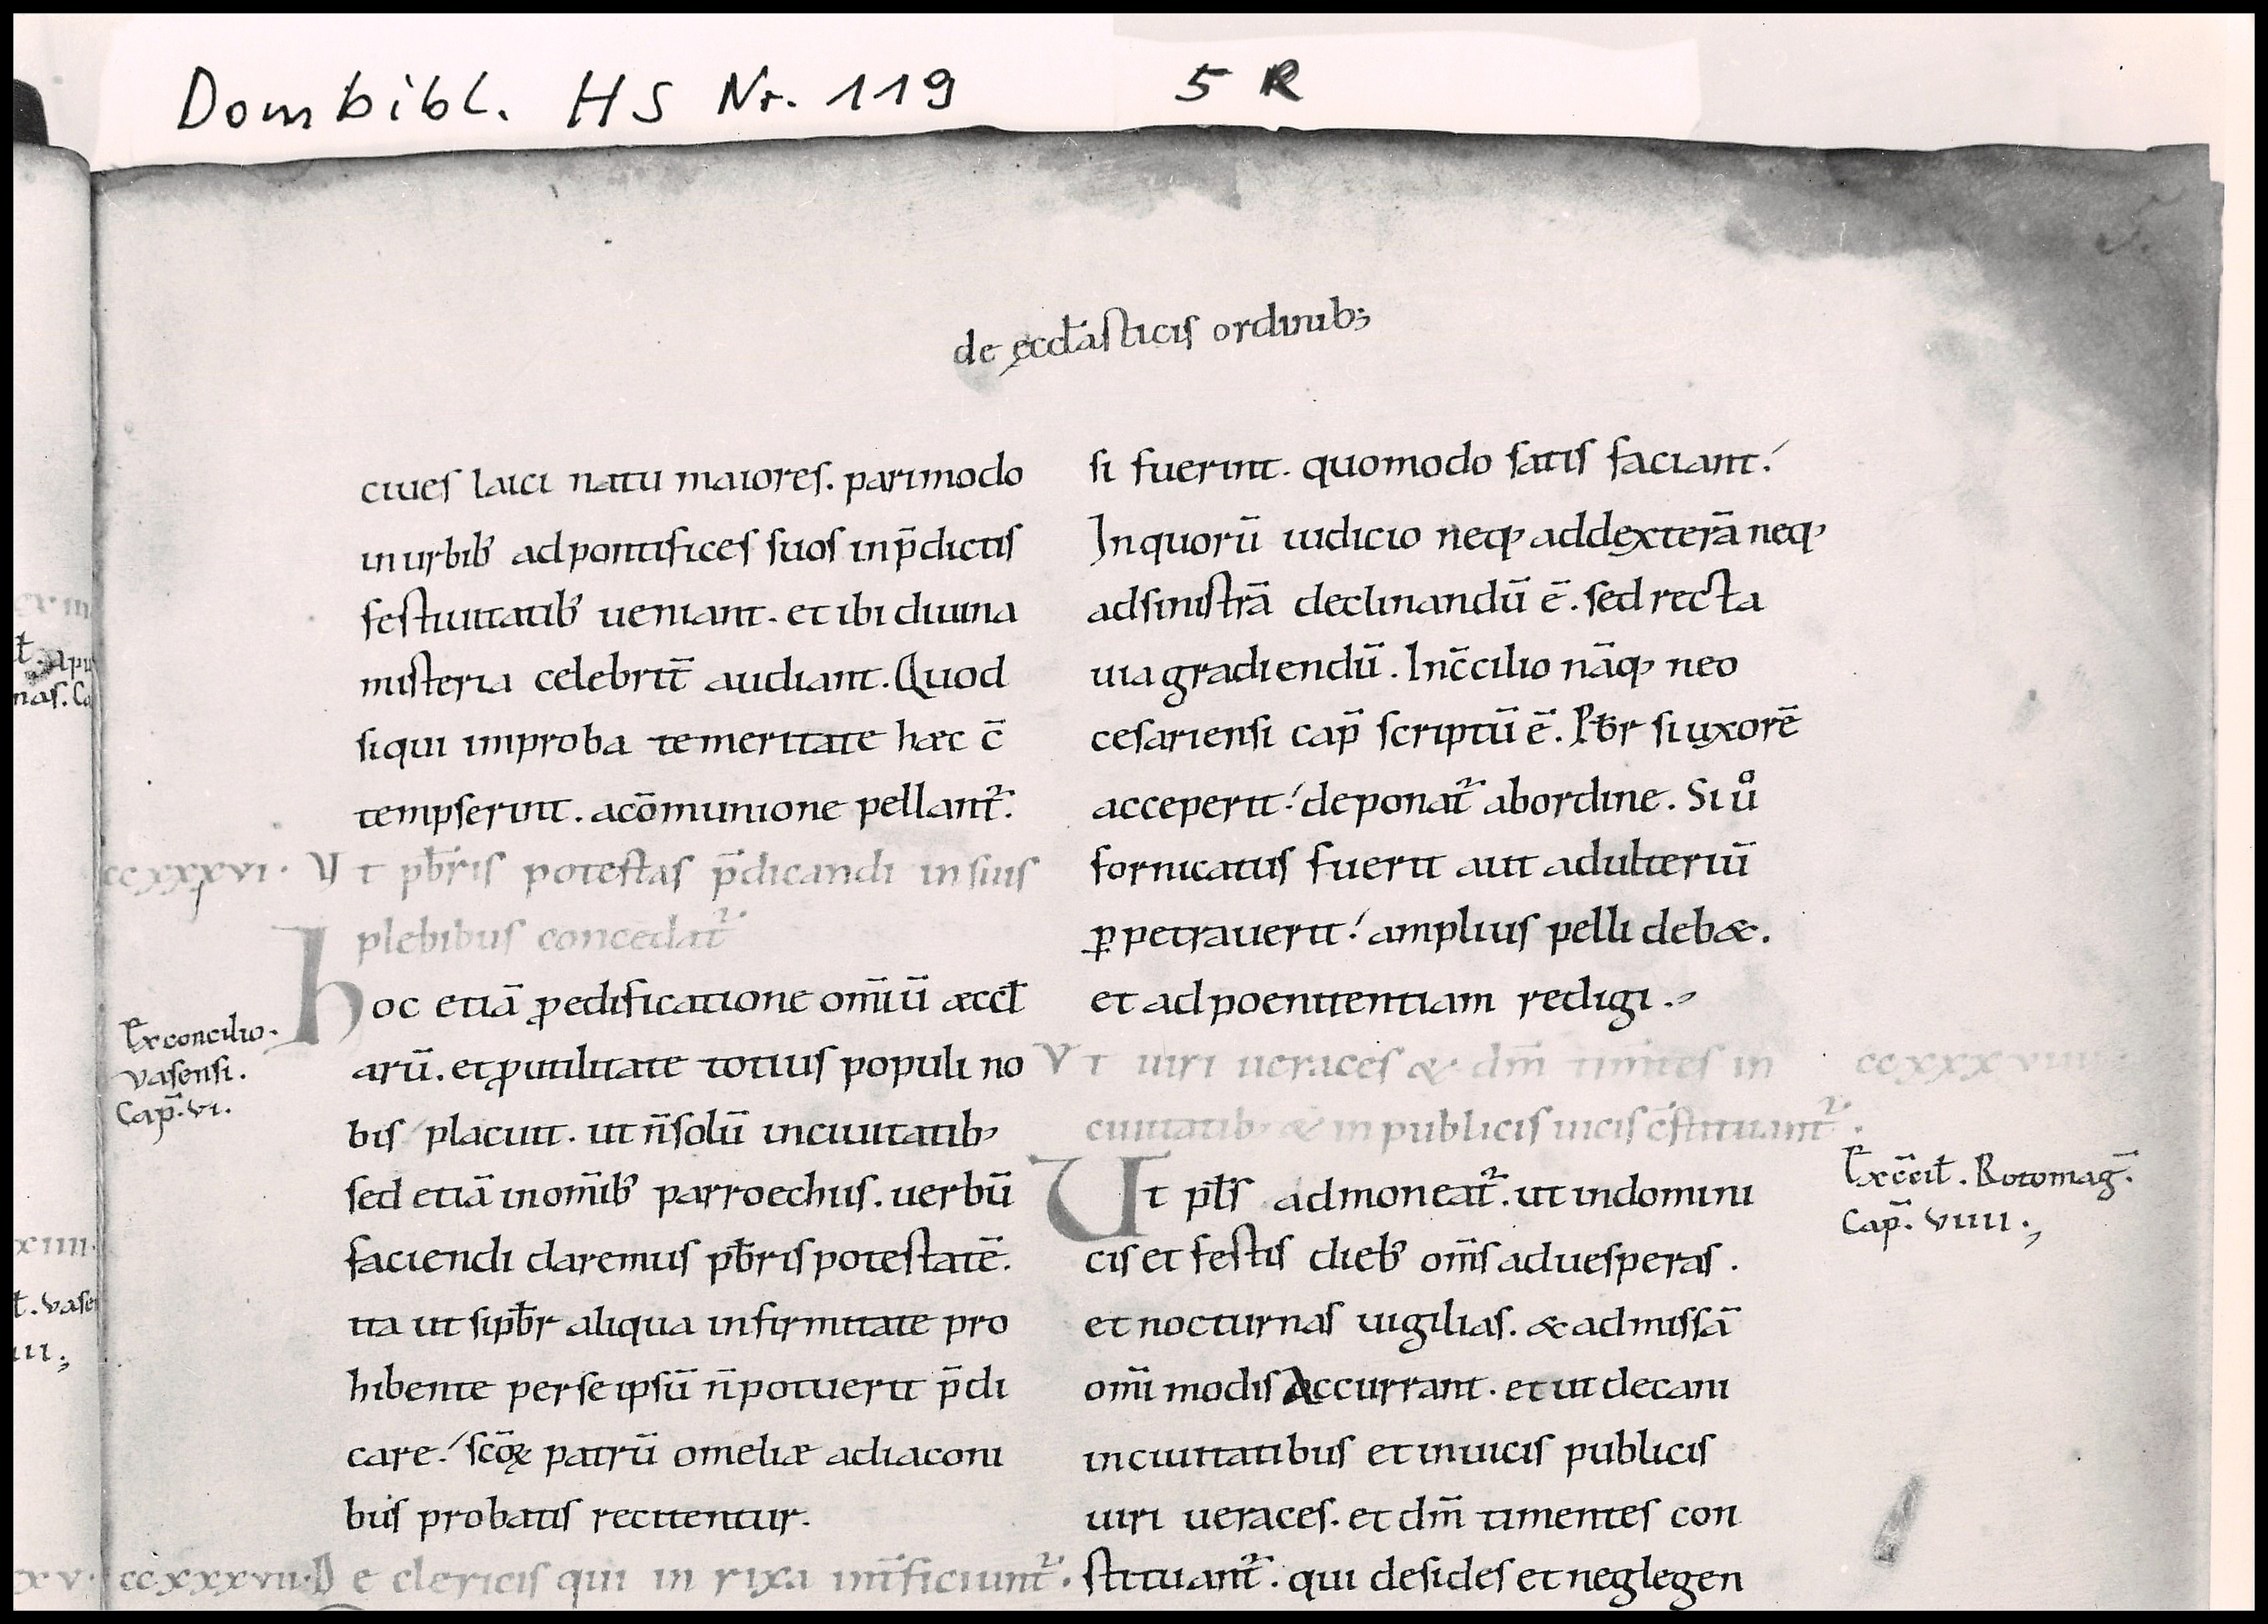 Dombibl. HS Nr. 119 5 R
de ęccl̄asticis ordinib;
ciues laici natu maiores. parimodo
in urbib' ad pontifices suos in p̄dictis
festiuitatib' ueniant. et ibi diuina
misteria celebrit̄ audiant. Quod
siqui improba temeritate hæc c̄
tempserint. acōmunione pellant᷑.
ccxxxvi. Ut pb̄ris potestas p̄dicandi in suis
plebibus concedat᷑.
Hoc etiā ꝓedificatione om̄iū æccl̄
Ex concilio.
vasensi.
Cap̄. vi.
arū. et ꝓutilitate totius populi no
bis placuit. ut n̄ solū inciuitatib;
sed etiā in om̄ib' parroechiis. uerbū
faciendi daremus pb̄ris potestatē.
ita ut si pb̄r aliqua infirmitate pro
hibente per se ipsū n̄ potuerit p̄di
care. scōꝝ patrū omeliæ adiaconi
bus probatis recitentur.
ccxxxvii. De clericis qui in rixa int̄ficiunt᷑.
si fuerint. quomodo satis faciant.
In quorū iudicio neq; addexterā neq;
adsinistrā declinandū ē. sed recta
uia gradiendū. In c̄cilio nāq; neo
cesariensi cap̄ scriptū ē. Pb̄r si uxorē
acceperit. deponat᷑ abordine. Si ů
fornicatus fuerit aut adulteriū
ꝑpetrauerit. amplius pelli deb&.
et adpoenitentiam redigi.
Vt uiri ueraces & dm̄ tim̄tes in ccxxxviii
ciuitatib; & in publicis uicis c̄stituant᷑.
Ut pl̄s admoneat᷑. ut indomini
Ex c̄cil̄. Rotomaḡ.
Cap̄. viiii.
cis et festis dieb' om̄s aduesperas.
et nocturnas uigilias. & admissā
om̄imodis accurrant. et ut decani
inciuitatibus et inuicis publicis
uiri ueraces. et dm̄ timentes con
stituant᷑. qui desides et neglegen